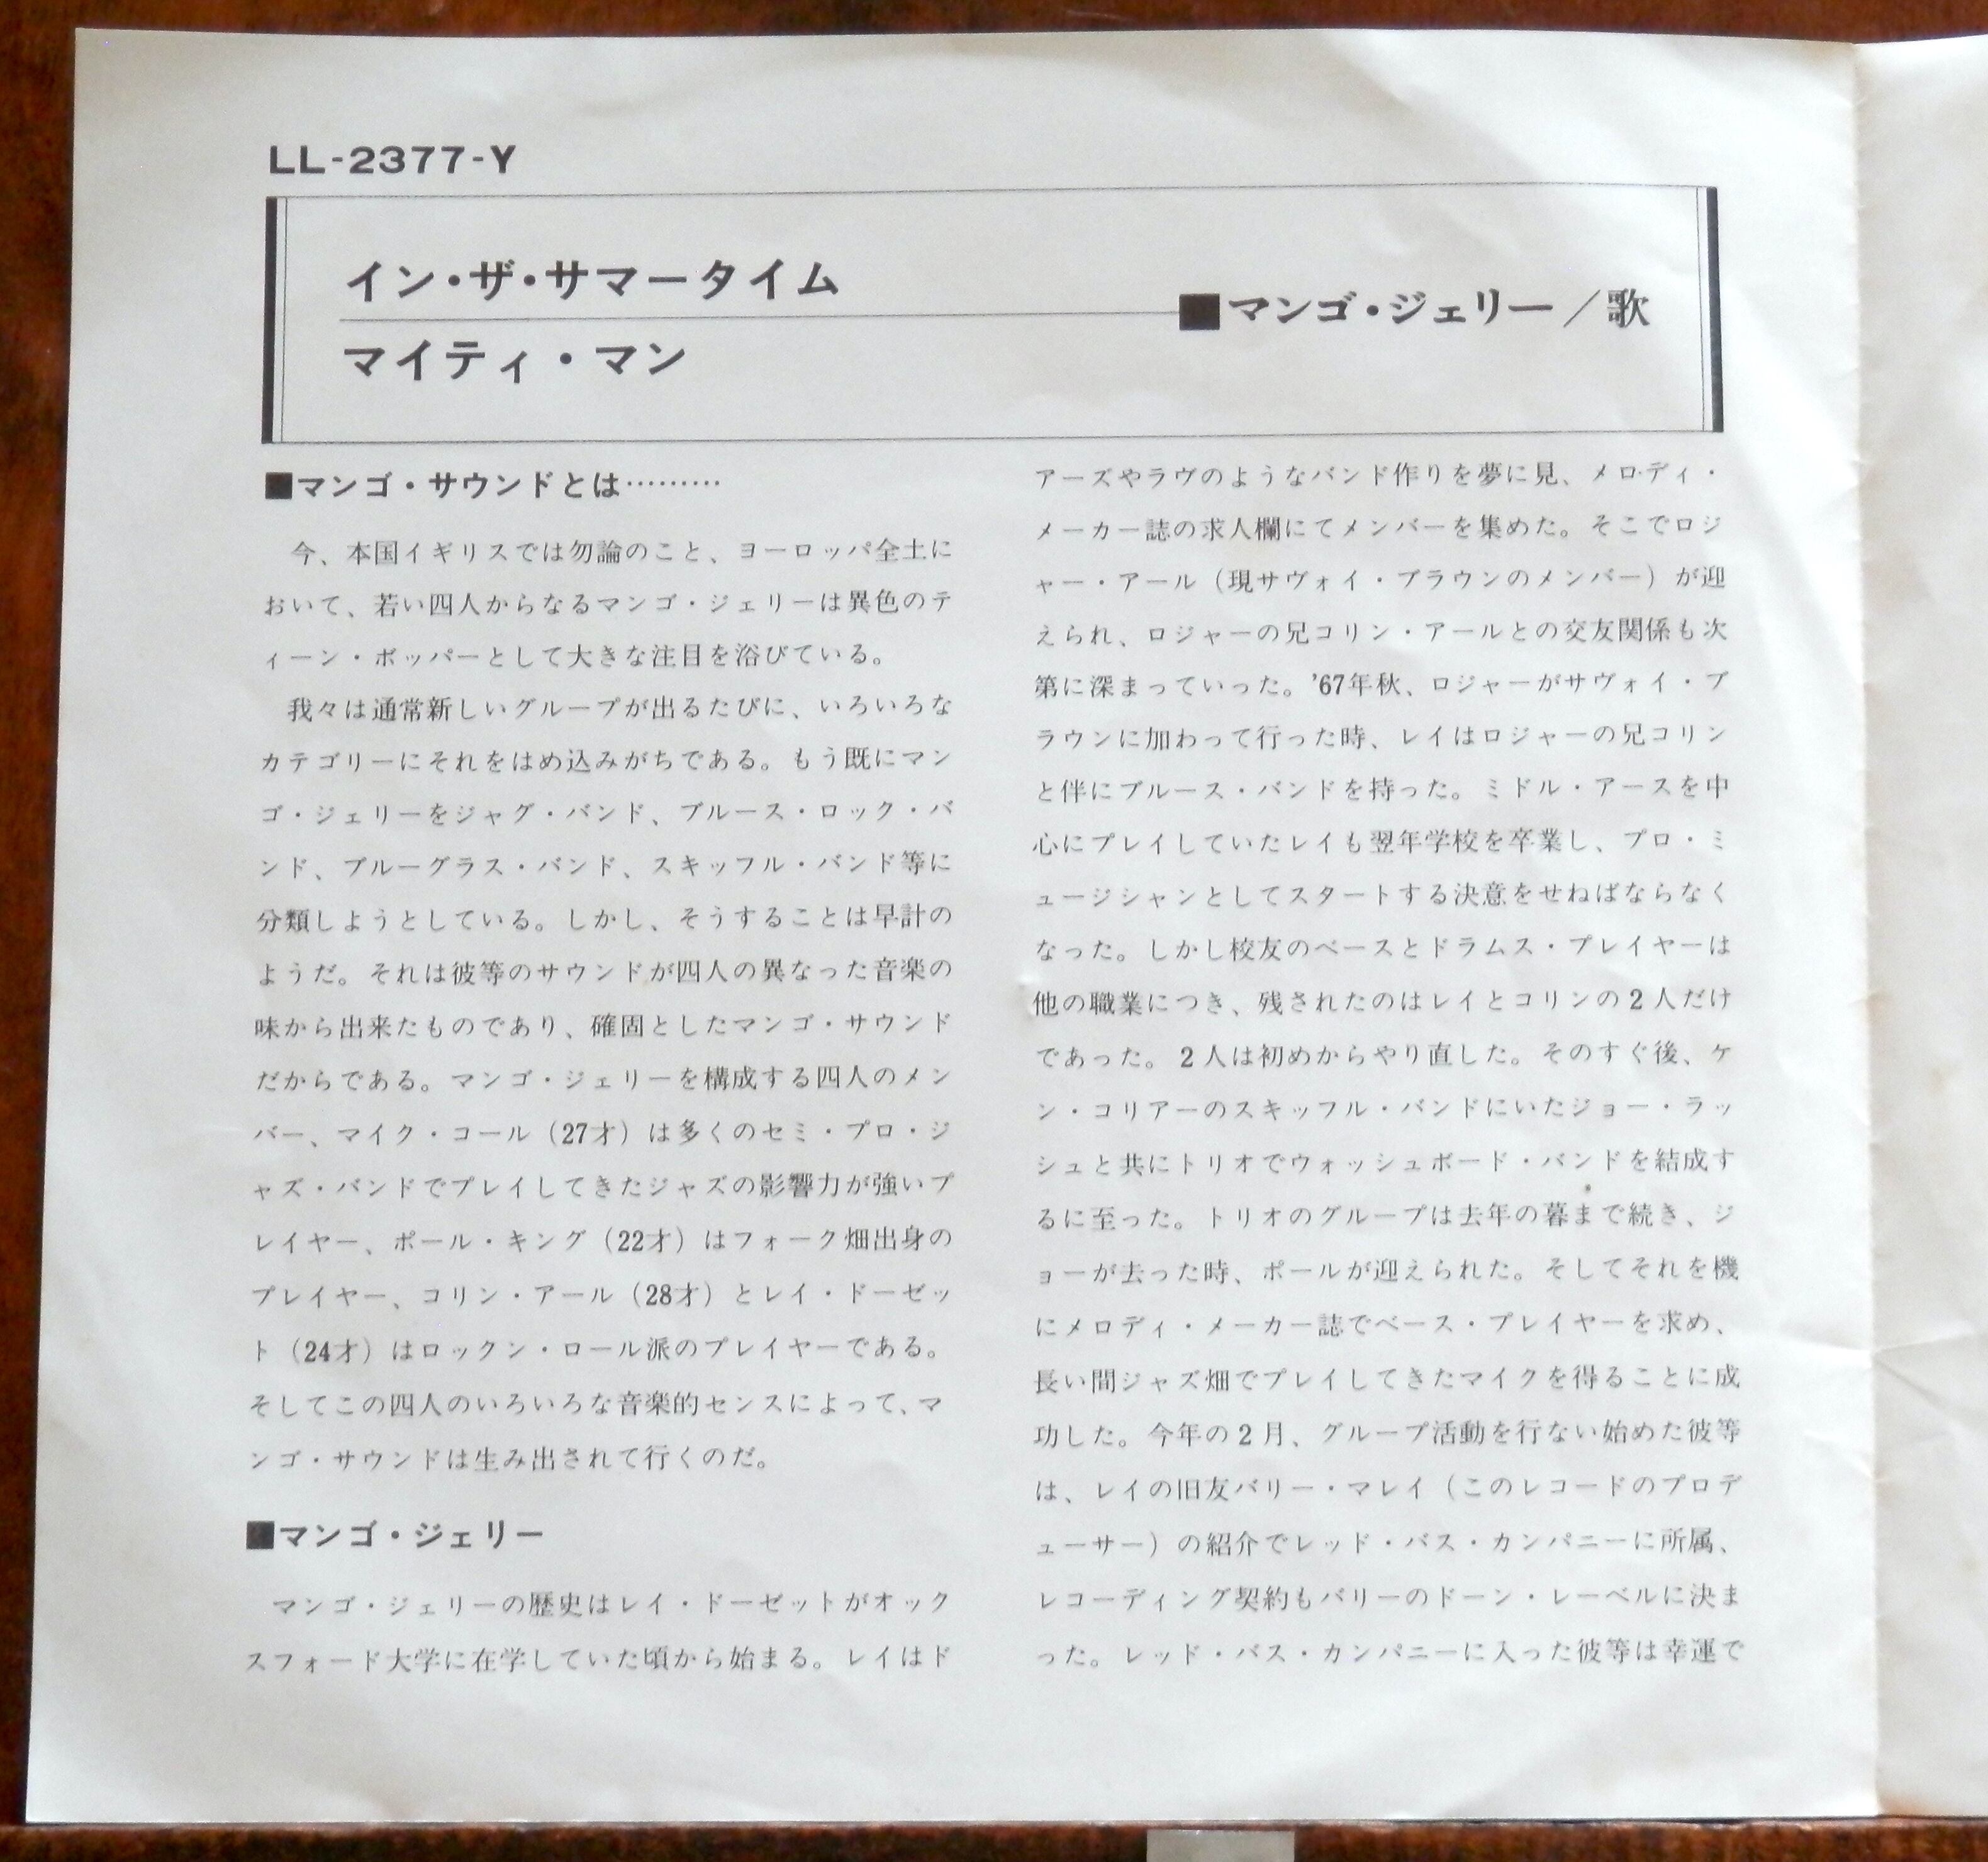 LL-2377-Y
イン・ザ・サマータイム
マイティ・マン
■マンゴ・ジェリー／歌
■マンゴ・サウンドとは………
今、本国イギリスでは勿論のこと、ヨーロッパ全土に
おいて、若い四人からなるマンゴ・ジェリーは異色のテ
ィーン・ポッパーとして大きな注目を浴びている。
我々は通常新しいグループが出るたびに、いろいろな
カテゴリーにそれをはめ込みがちである。もう既にマン
ゴ・ジェリーをジャグ・バンド、ブルース・ロック・バ
ンド、ブルーグラス・バンド、スキッフル・バンド等に
分類しようとしている。しかし、そうすることは早計の
ようだ。それは彼等のサウンドが四人の異なった音楽の
味から出来たものであり、確固としたマンゴ・サウンド
だからである。マンゴ・ジェリーを構成する四人のメン
バー、マイク・コール（27才）は多くのセミ・プロ・ジ
ャズ・バンドでプレイしてきたジャズの影響力が強いプ
レイヤー、ポール・キング（22才）はフォーク畑出身の
プレイヤー、コリン・アール（28才）とレイ・ドーゼッ
ト（24才）はロックン・ロール派のプレイヤーである。
そしてこの四人のいろいろな音楽的センスによって、マ
ンゴ・サウンドは生み出されて行くのだ。
■マンゴ・ジェリー
マンゴ・ジェリーの歴史はレイ・ドーゼットがオック
スフォード大学に在学していた頃から始まる。レイはド
アーズやラヴのようなバンド作りを夢に見、メロディ・
メーカー誌の求人欄にてメンバーを集めた。そこでロジ
ャー・アール（現サヴォイ・ブラウンのメンバー）が迎
えられ、ロジャーの兄コリン・アールとの交友関係も次
第に深まっていった。'67年秋、ロジャーがサヴォイ・ブ
ラウンに加わって行った時、レイはロジャーの兄コリン
と伴にブルース・バンドを持った。ミドル・アースを中
心にプレイしていたレイも翌年学校を卒業し、プロ・ミ
ュージシャンとしてスタートする決意をせねばならなく
なった。しかし校友のベースとドラムス・プレイヤーは
他の職業につき、残されたのはレイとコリンの2人だけ
であった。2人は初めからやり直した。そのすぐ後、ケ
ン・コリアーのスキッフル・バンドにいたジョー・ラッ
シュと共にトリオでウォッシュボード・バンドを結成す
るに至った。トリオのグループは去年の暮まで続き、ジ
ョーが去った時、ポールが迎えられた。そしてそれを機
にメロディ・メーカー誌でベース・プレイヤーを求め、
長い間ジャズ畑でプレイしてきたマイクを得ることに成
功した。今年の2月、グループ活動を行ない始めた彼等
は、レイの旧友バリー・マレイ（このレコードのプロデ
ューサー）の紹介でレッド・バス・カンパニーに所属、
レコーディング契約もバリーのドーン・レーベルに決ま
った。レッド・バス・カンパニーに入った彼等は幸運で